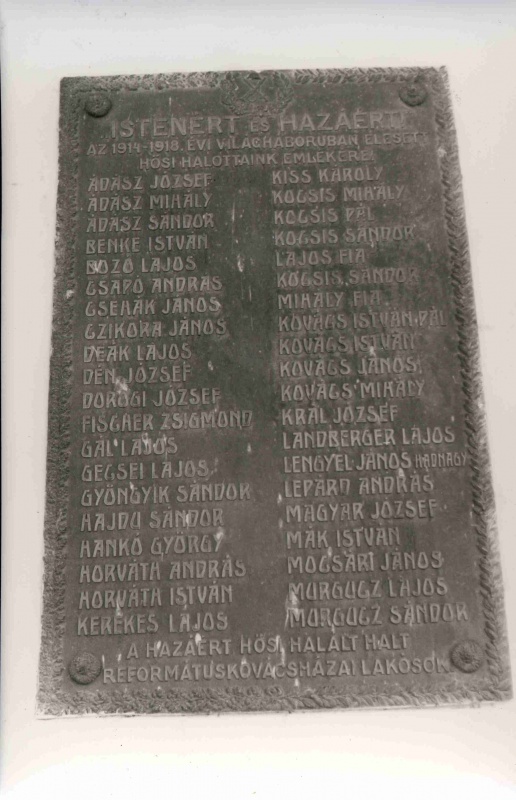 ISTENÉRT ÉS HAZÁÉRT!
AZ 1914-1918. ÉVI VILÁGHÁBORUBAN ELESETT
HŐSI HALOTTAINK EMLÉKÉRE!
ÁDÁSZ JÓZSEF
ÁDÁSZ MIHÁLY
ÁDÁSZ SÁNDOR
BENKE ISTVÁN
BOZÓ LAJOS
CSAPÓ ANDRÁS
CSEHÁK JÁNOS
CZIKORA JÁNOS
DEÁK LAJOS
DÉN JÓZSEF
DOROGI JÓZSEF
FISCHER ZSIGMOND
GÁL LAJOS
GECSEI LAJOS
GYÖNGYIK SÁNDOR
HAJDU SÁNDOR
HANKÓ GYÖRGY
HORVÁTH ANDRÁS
HORVÁTH ISTVÁN
KEREKES LAJOS
KISS KÁROLY
KOCSIS MIHÁLY
KOCSIS PÁL
KOCSIS SÁNDOR
LAJOS FIA
KOCSIS SÁNDOR
MIHÁLY FIA
KOVÁCS ISTVÁN PÁL
KOVÁCS ISTVÁN
KOVÁCS JÁNOS
KOVÁCS MIHÁLY
KRÁL JÓZSEF
LANDBERGER LAJOS
LENGYEL JÁNOS HADNAGY
LEPÁRD ANDRÁS
MAGYAR JÓZSEF
MÁK ISTVÁN
MOCSÁRI JÁNOS
MURGUCZ LAJOS
MURGUCZ SÁNDOR
A HAZÁÉRT HŐSI HALÁLT HALT
REFORMÁTUSKOVÁCSHÁZAI LAKOSOK